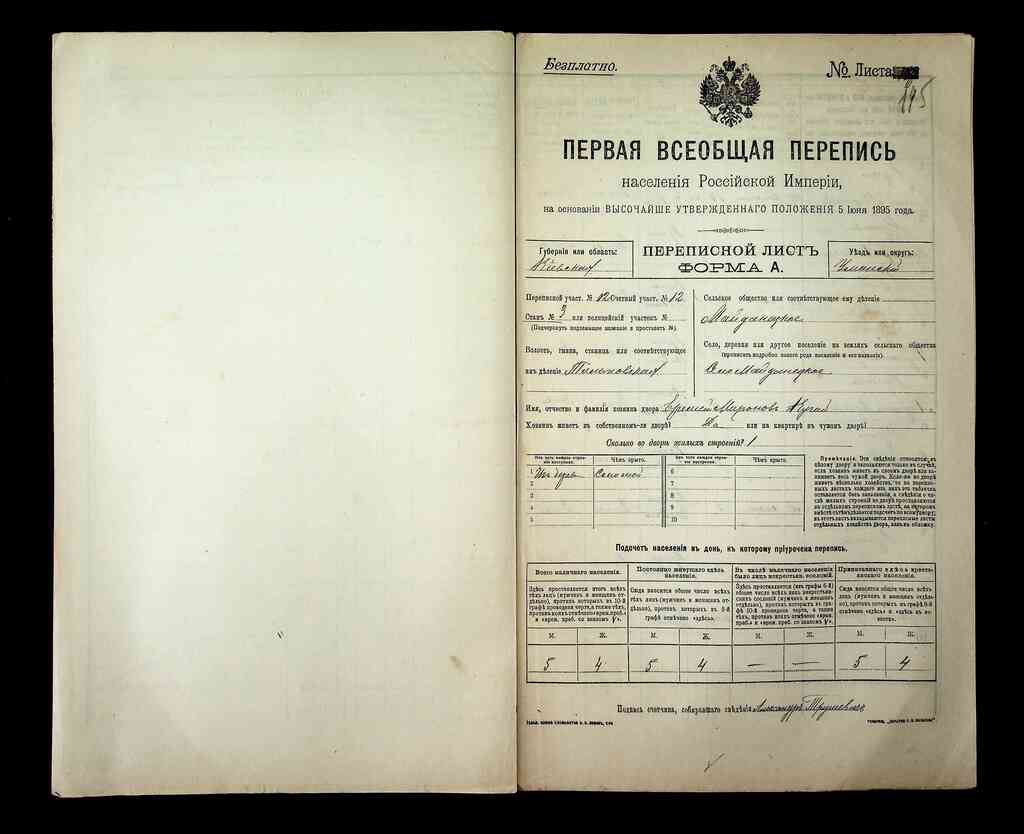 Безплатно.
№ Листа
195
ПЕРВАЯ ВСЕОБЩАЯ ПЕРЕПИСЬ
населенія Россійской Имперіи,
на основаніи ВЫСОЧАЙШЕ УТВЕРЖДЕННАГО ПОЛОЖЕНІЯ 5 Іюня 1895 года.
Губернія или область:
Кіевская
ПЕРЕПИСНОЙ ЛИСТЪ
ФОРМА А.
Уѣздъ или округъ:
Уманскій
Переписной участ. № 12 Счетный участ. № 12
Станъ № 3 или полицейскій участокъ №
(Подчеркнуть подлежащее названіе и проставить №).
Волость, гмина, станица или соотвѣтствующее
имъ дѣленіе Тальновская
Сельское общество или соотвѣтствующее ему дѣленіе
Майданецкое
Село, деревня или другое поселеніе на земляхъ сельскаго общества
(прописать подробно какого рода поселеніе и его названіе).
Село Майданецкое
Имя, отчество и фамилія хозяина двора Мироновъ
Хозяинъ живетъ въ собственномъ-ли дворѣ? Да или на квартирѣ въ чужомъ дворѣ?
Сколько во дворѣ жилыхъ строеній? 1
Изъ чего каждое строеніе построено.
Чѣмъ крыто.
Изъ чего каждое строеніе построено.
Чѣмъ крыто.
1 Изъ дерев Соломой 6
2 7
3 8
4 9
5 10
Примѣчаніе. Эти свѣдѣнія относятся къ
цѣлому двору и заполняются только въ случаѣ,
если хозяинъ живетъ въ своемъ дворѣ или занимаетъ
весь чужой дворъ. Коли-же во дворѣ
живетъ нѣсколько хозяйствъ, то на переписныхъ
листахъ каждаго изъ нихъ эта табличка
оставляется безъ заполненія, а свѣдѣнія о числѣ
жилыхъ строеній во дворѣ проставляются
Подсчетъ населенія въ день, къ которому пріурочена перепись.
Всего наличнаго населенія.
Постоянно живущаго здѣсь населенія.
Въ числѣ наличнаго населенія было лицъ некрестьян. сословій.
Приписаннаго здѣсь крестьянскаго населенія.
Здѣсь проставляется итогъ всѣхъ
тѣхъ лицъ (мужчинъ и женщинъ отдѣльно),
противъ которыхъ въ 10-й
графѣ проведена черта, а также тѣхъ,
противъ коихъ отмѣчено «врем. преб.»
Сюда вносится общее число всѣхъ
тѣхъ лицъ (мужчинъ и женщинъ отдѣльно),
противъ которыхъ въ 9-й
графѣ отмѣчено «здѣсь».
Здѣсь проставляется (изъ графы 6-й)
общее число всѣхъ лицъ некрестьянскихъ
сословій (мужчинъ и женщинъ
отдѣльно), противъ которыхъ въ графѣ
10-й проведена черта, а также
тѣхъ, противъ коихъ отмѣчено «врем.
преб.»
Сюда вносится общее число всѣхъ
лицъ (мужчинъ и женщинъ отдѣльно),
противъ которыхъ въ графѣ 8-й
отмѣчено «здѣсь»
М. Ж. М. Ж. М. Ж. М. Ж.
5 4 5 4 — — 5 4
Подпись счетчика, собиравшаго свѣдѣнія Александръ